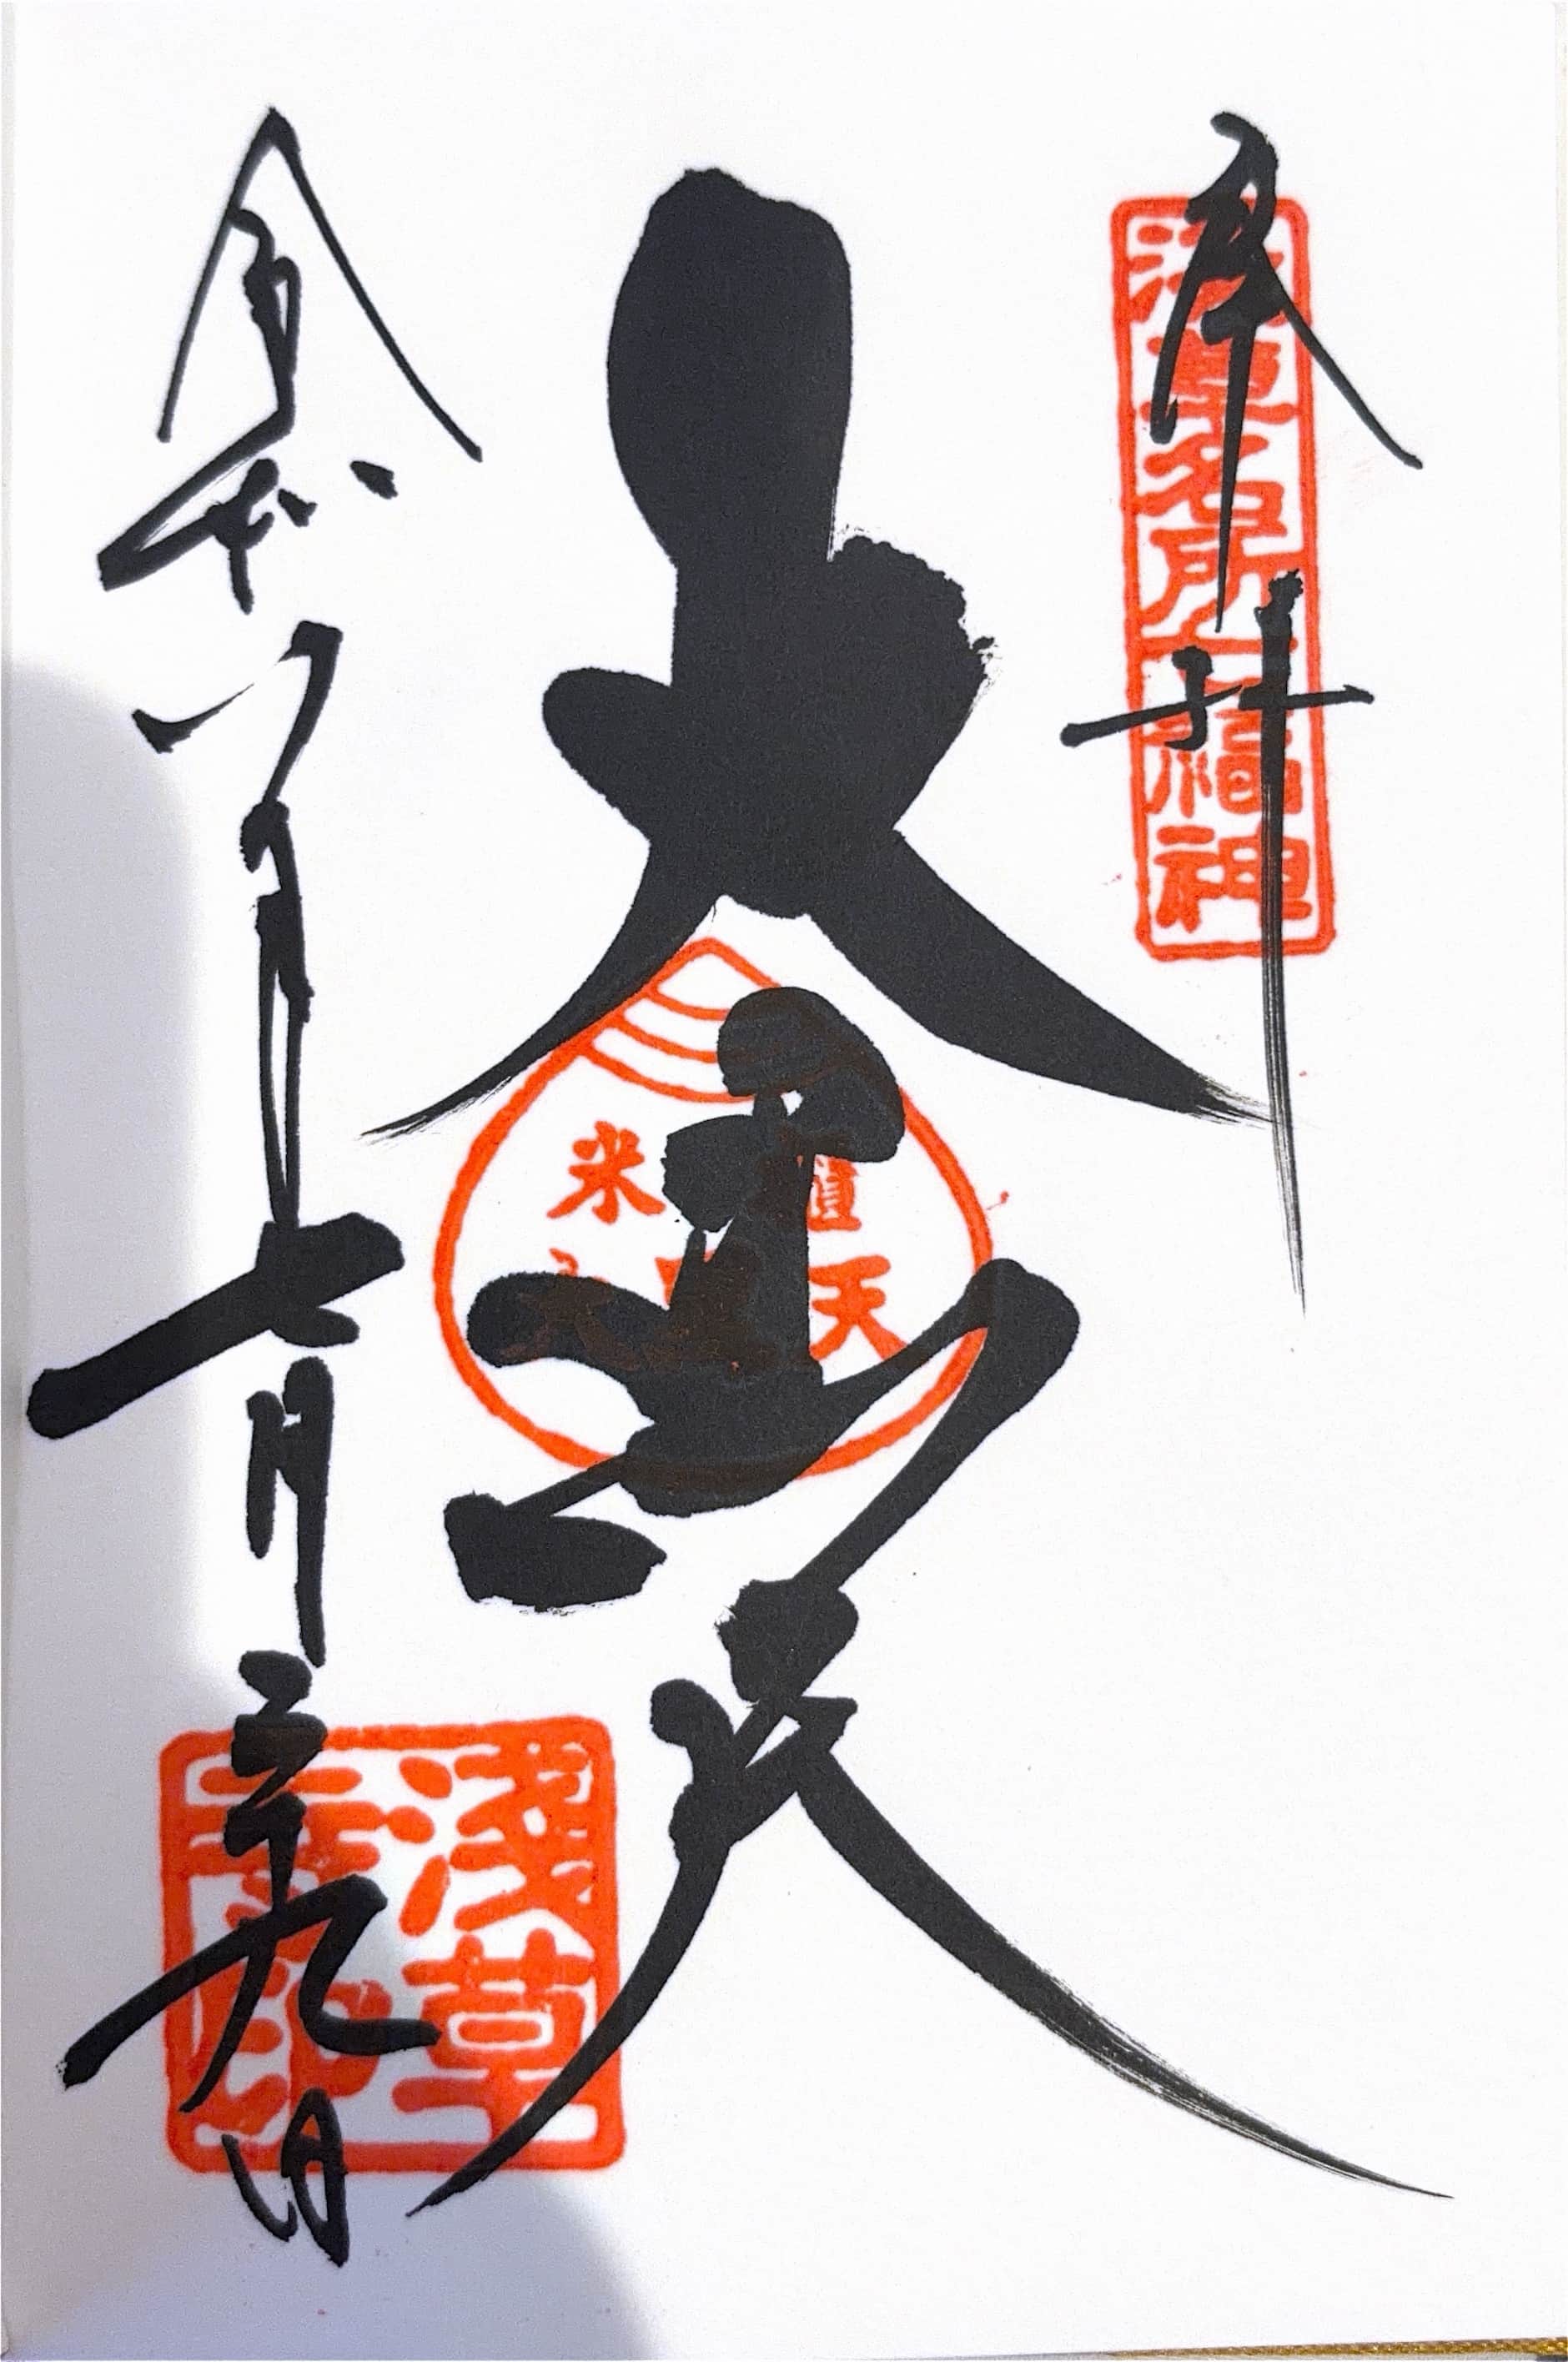 奉拝
浅草名所七福神
大黒天
米
天
令和
年七月二十九日
浅草
寺印